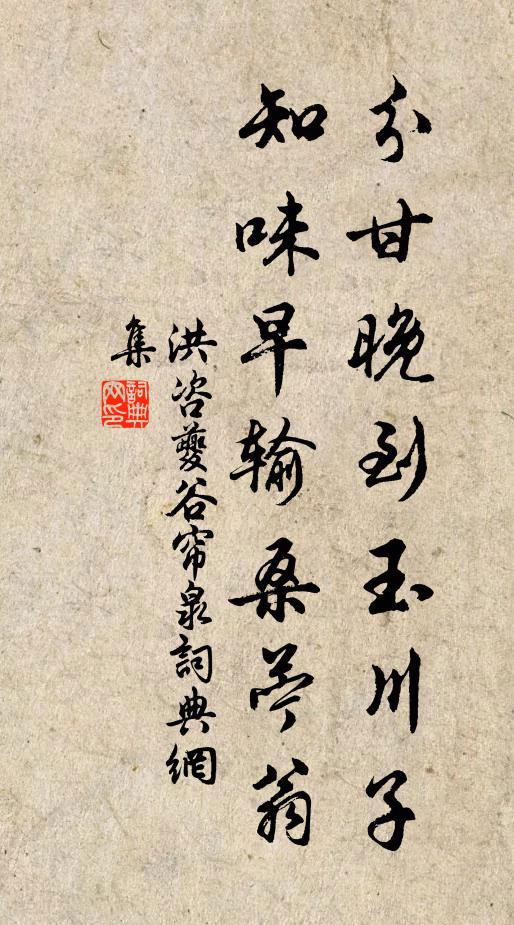 分甘晚到玉川子
知味早输桑苎翁
洪咨夔谷帘泉詞典網
集
詞典
网印